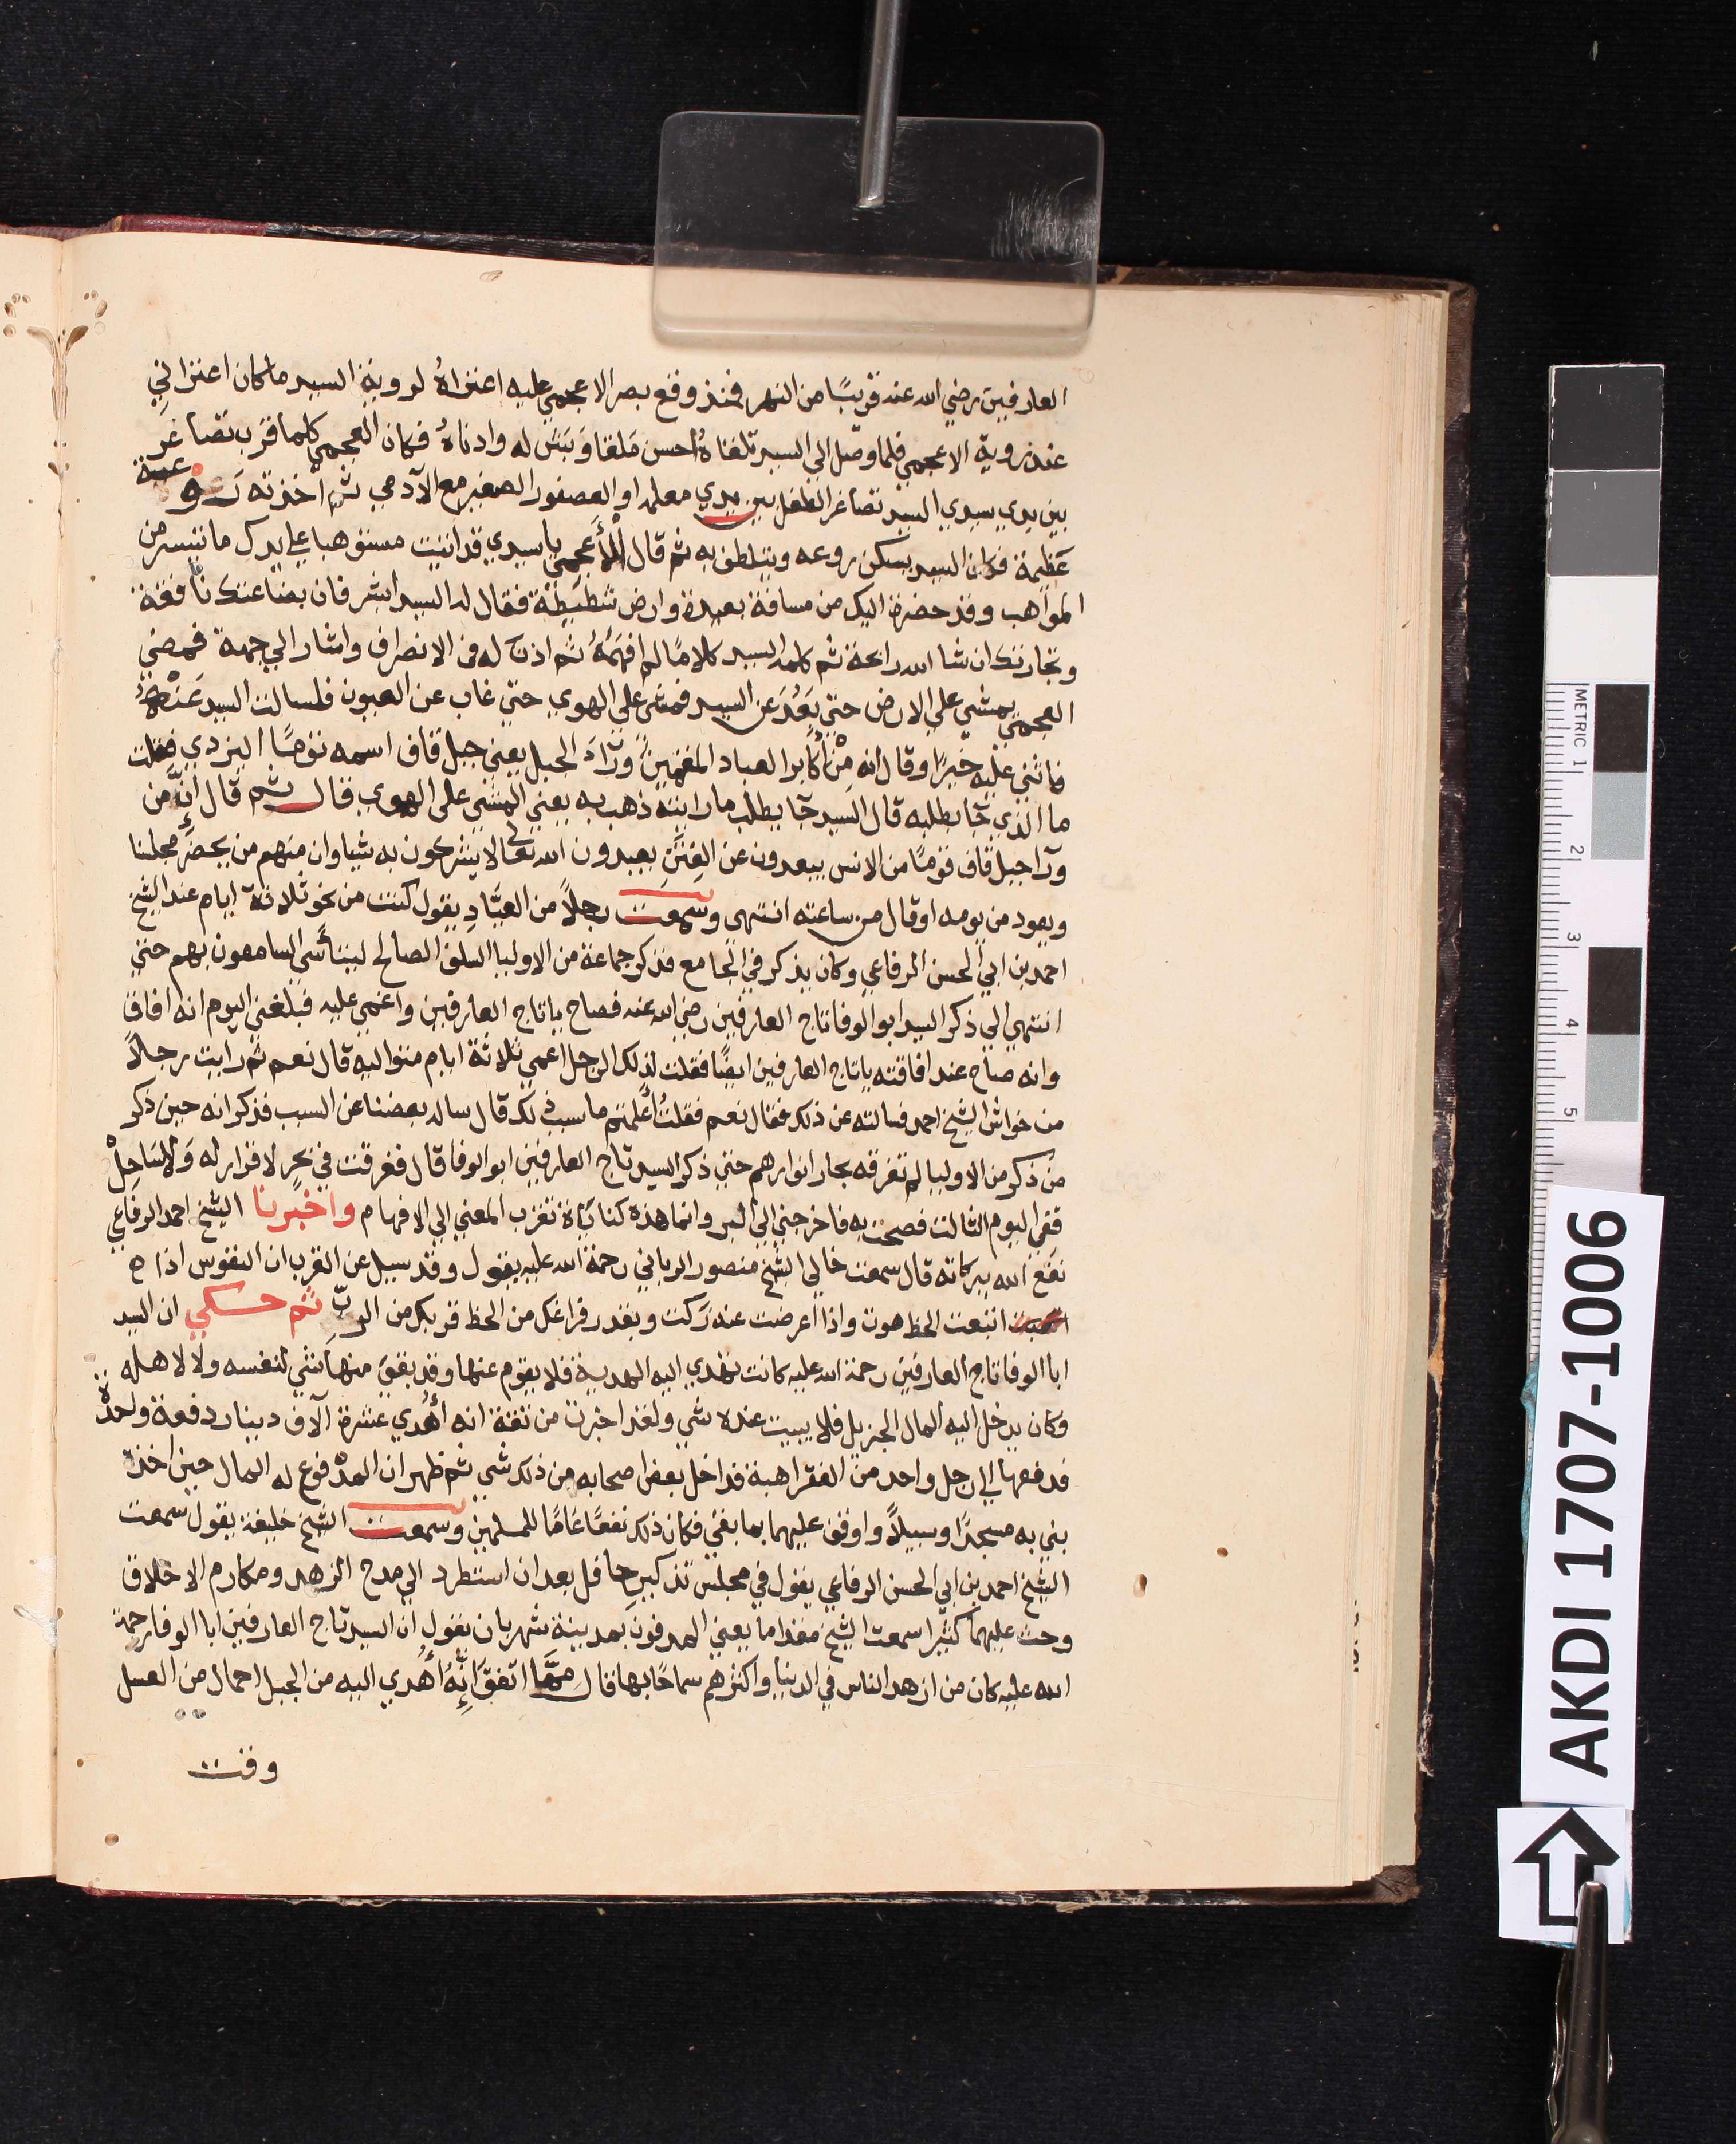 العارفين رضي الله عنه قريبًا من النهر فمنذ وقع بصر الاعجمي عليه اعتراهُ لروية السيد ما كان اعتراني
عند روية الاعجمي فلما وصل الي السيد تلقاهُ احسن مَلقا وَبَشَ له وادناهُ فكان العجمي كلما قرب تضاغر
بين يدي سيدي السيد تضاغر الطفل بين يدي معلمه او العصفور الصغير مع الآدمي ثم اخذته رعبة
عَظيمة فكان السيد يسكن روعه ويتلطف به ثم قال الأعجمي ياسيدي قد اتيت مستوهبا علي يدك ما تيسر من
المواهب وقد حضرة اليك من مسافة بعيدة وارض شطيطة فقال له السيد ابشر فان بضاعتك نافقة
وتجارتك ان شا الله رابحة ثم كلمه السيد كلامًا لم افهمهُ ثم اذن له في الانصراف واشار الي جهة فمضي
العجمي يمشي علي الارض حتي بَعُدَ عن السيد فمشي علي الهوي حتي غاب عن العيون فلما سالت السيد عَنْهُ
فاثني عليه خيرًا وقال انه مِنْ أكابر العباد المقيمين ورآدَ الجبل يعني جبل قاف اسمه توصًا اليزدي فقلت
ما الذي جَا يطلبه قال السيد جَا يطلب ما رايته ذهب به يعني المشي علي الهوي قال ثم قال إنَّ من
ورآ جبل قاف قومًا من الانس يبعدون عن الفِتَنِ يعبدون الله تعالي لا يشركون به شيا وان منهم من يحضَر مجلسنا
ويعود من يومه او قال من ساعته انتهي وسمعت رجلاً من العبَّاد يقول كنت من نحو ثلاثة ايام عند الشيخ
احمد بن ابي الحسن الرفاعي وكان يذكر في الجامع فذكر جماعة من الاوليا السلف الصالح ليتأسي السامعون بهم حتي
انتهي الي ذكر السيد ابو الوفا تاج العارفين رضي الله عنه فصاح ياتاج العارفين واغمي عليه فبلغني اليوم انه افاق
وانه صاح عند افاقته ياتاج العارفين ايضًا فقلت لذلك الرجل اغمي ثلاثة ايام متواليه قال نعم ثم رايت رجلاً
من خواش الشيخ احمد فسالته عن ذلك فقال نعم فقلتُ أعُلمتم ما سبب ذلك قال ساله بعضنا عن السبب فذكر انه حين ذكر
من ذكر من الاوليا لم تغرقه بحار انوارهم حتي ذكر السيد تاج العارفين ابو الوفا قال فغرقت في بحرٍ لا قرار له وَلا سَاحِلْ
ففي اليوم الثالث فصحت به فاخرجني الي البر وانما هذه كنايَاة تقرب المعني الي الافهام واخبرنا الشيخ احمد الرفاعي
نفع الله ببركاته قال سمعت خالي الشيخ منصور الرباني رحمة الله عليه يقول وقد سيل عن القرب ان النفوس اذا
اتبعت الحظ هوت واذا اعرضت عنه زكت وبقدر فراغك من الحظ قربك من الربّ ثم حكي ان السيد
ابا الوفا تاج العارفين رحمة الله عليه كانت تهدي اليه الهدية فلا يقوم عنها وقد بقيَ منها شئي لنفسه ولا لاهله
وكان يدخل اليه المال الجزيل فلا يبيت عنده شي ولقد اخبرت من ثقة انه أُهُدي عشرة آلاف دينار دفعة واحدة
فدفعها الي رجل واحد من الفقرا هبة فداخل بعض اصحابه من ذلك شي ثم ظهر ان المدفوع له المال حين اخذه
بني به مسجدًا وسبيلاً واوقف عليهما بما بقي فكان ذلك نفعًا عَامًا للمسلمين وسمعت الشيخ خليفة يقول سمعت
الشيخ احمد بن ابي الحسن الرفاعي يقول في مجلس تذكيرٍ حافل بعد ان استطرد الي مدح الزهد ومكارم الاخلاق
وحث عليهما كثيرا سمعت الشيخ مقداما يعني المدفون بمدينة شهربان يقول ان السيد تاج العارفين ابا الوفا رحمة
الله عليه كان من ازهد الناس في الدنيا واكثرهم سماحًا بها قال مِمَّا اتفقَ انَّهُ أُهدي اليه من الجبل احمال من العسل
وقت
AKDI 1707-1006
METRIC 1
2
3
4
5